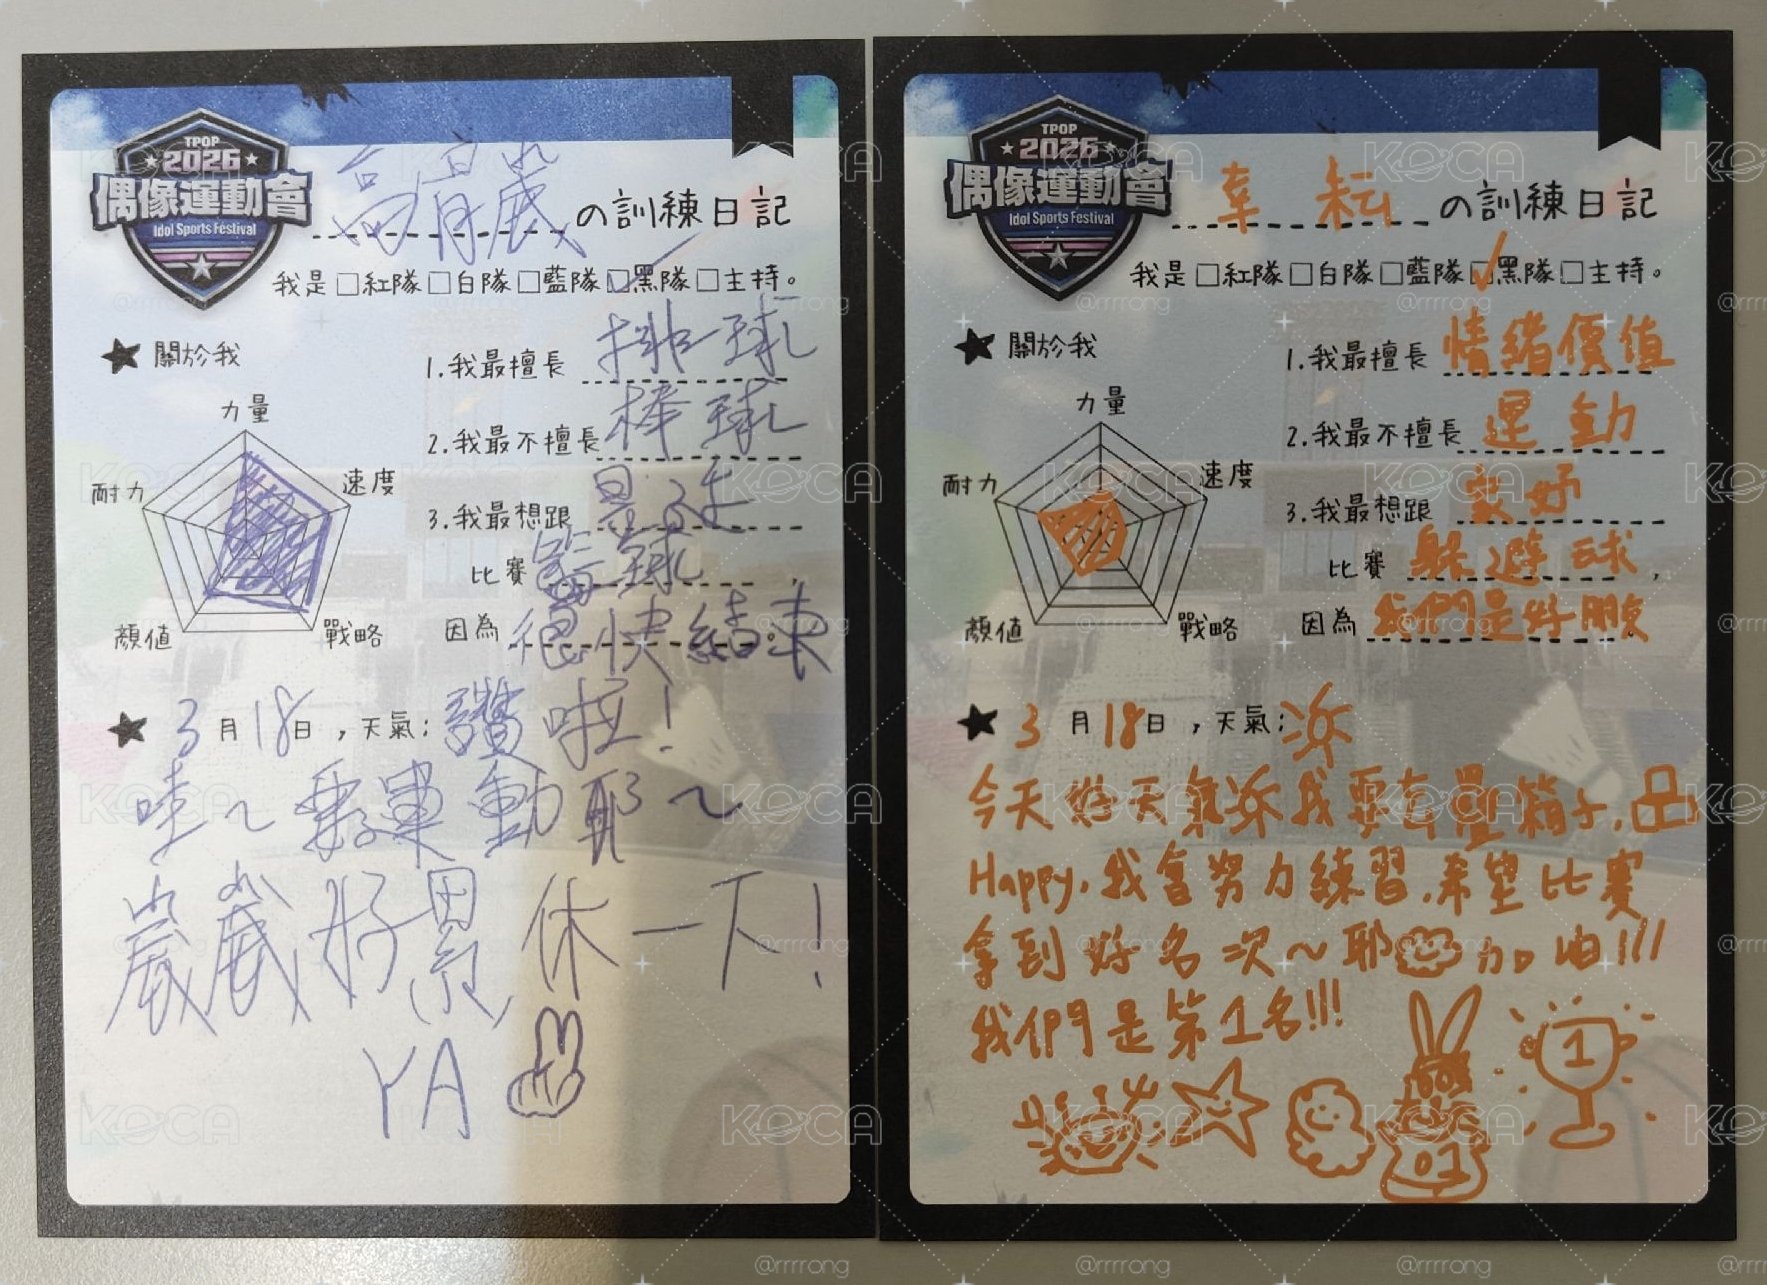 TPOP
2026
偶像運動會
Idol Sports Festival
高宜歲の訓練日記
我是□紅隊□白隊□藍隊☑黑隊□主持。
★ 關於我
力量
速度
戰略
顏值
耐力
1.我最擅長 排球
2.我最不擅長 棒球
3.我最想跟
比賽 籃球,
因為 很快結束。
★ 3月18日,天氣:讚啦!
哇~要運動耶~
歲歲好累休一下!
YA
TPOP
2026
偶像運動會
Idol Sports Festival
幸耘の訓練日記
我是□紅隊□白隊□藍隊☑黑隊□主持。
★ 關於我
力量
速度
戰略
顏值
耐力
1.我最擅長 情緒價值
2.我最不擅長 運動
3.我最想跟 家妤
比賽 躲避球,
因為 我們是好朋友。
★ 3月18日,天氣:
今天好天氣 我要去疊箱子,
Happy,我會努力練習,希望比賽
拿到好名次~耶 加油!!!
我們是第1名!!!
1
01
KOCA
@rrrrong